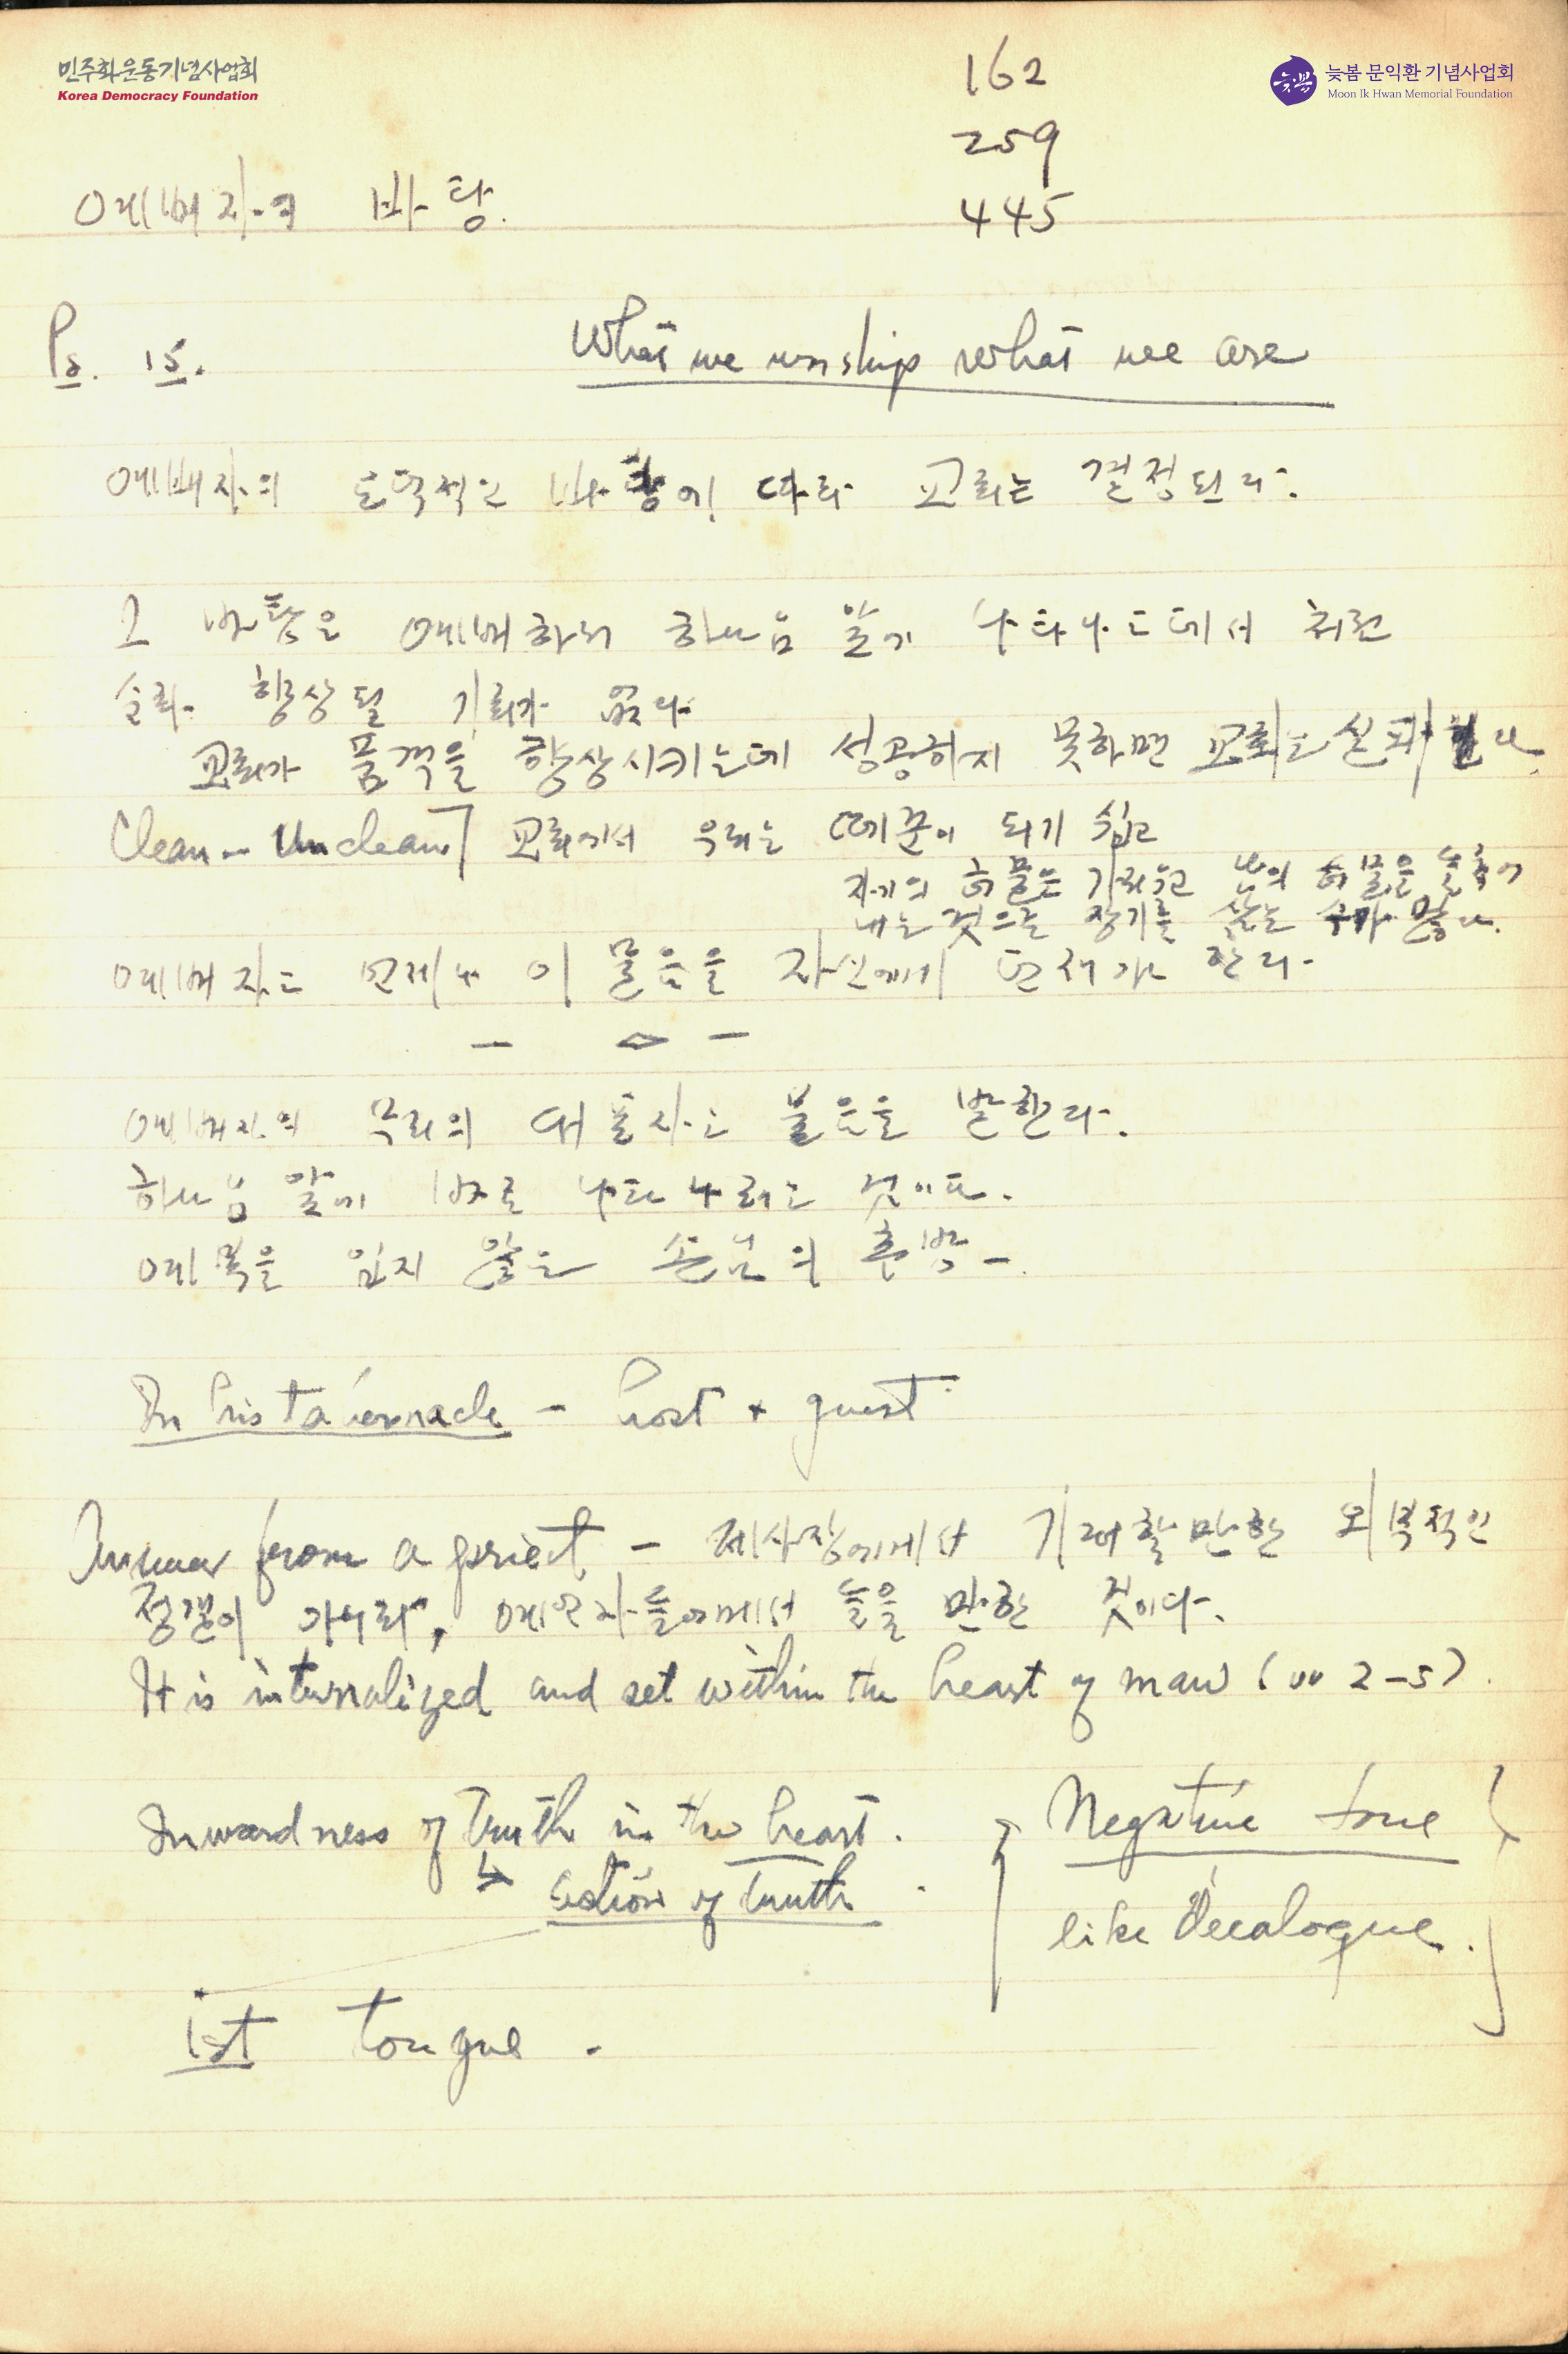 민주화운동기념사업회
Korea Democracy Foundation
늦봄 문익환 기념사업회
Moon Ik Hwan Memorial Foundation
162
259
445
예배자의 바탕.
Ps. 15.
What we worship what we are
예배자의 도덕적인 바탕에 따라 교회는 결정된다.
그 바탕은 예배하러 하나님 앞에 나타나는데서
향상될 기회가 없다
교회가 품격을 향상시키는데 성공하지 못하면 교회는 실패한다.
Clean - Unclean 교회에서 우리는 되기 쉽고
자기의 허물은 기리우고 남의 허물은 들추어
내는 것으로 장기를 삼는 수가 많다.
예배자는 언제나 이 물음을 자신에게 던져야 한다.
예배자의 무리의 물음을 발한다.
하나님 앞에 바로 나타나려는 것이다.
예복을 입지 않은 손님의 추방 -
In his tabernacle - host + guest
Answer from a priest - 제사장에게서 기대할 만한 외부적인
정결이 아니라, 예언자들에게서 들을 만한 것이다.
It is internalized and set within the heart of man (vv 2-5).
Inwardness of truth in the heart.
action of truth
Negative tone
like decalogue.
1st tongue.